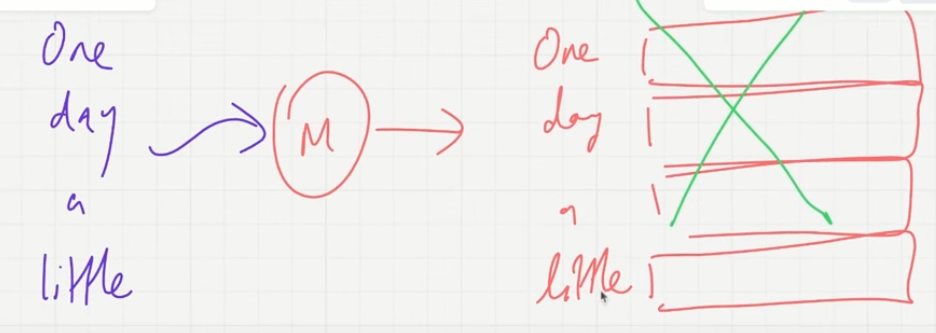 One
day
a
little
M
One
day
a
little